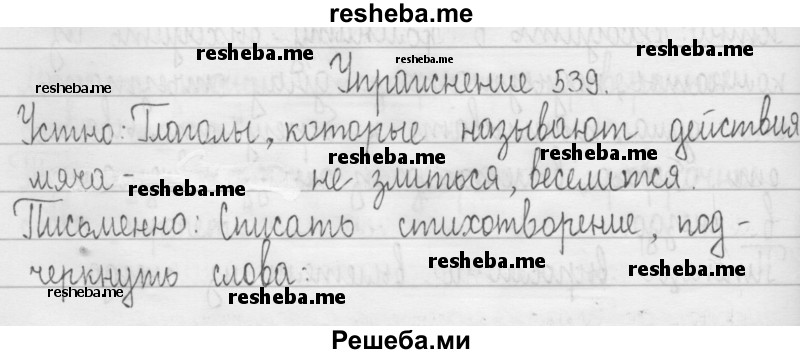 resheba.me
resheba.me resheba.me resheba.me
resheba.me
Упражнение 539.
Устно: Глаголы, которые называют действия
resheba.me resheba.me
мяча - не злиться, веселится.
resheba.me
Письменно: Списать стихотворение, под-
resheba.me resheba.me
черкнуть слова:
resheba.me resheba.me
Решеба.ми